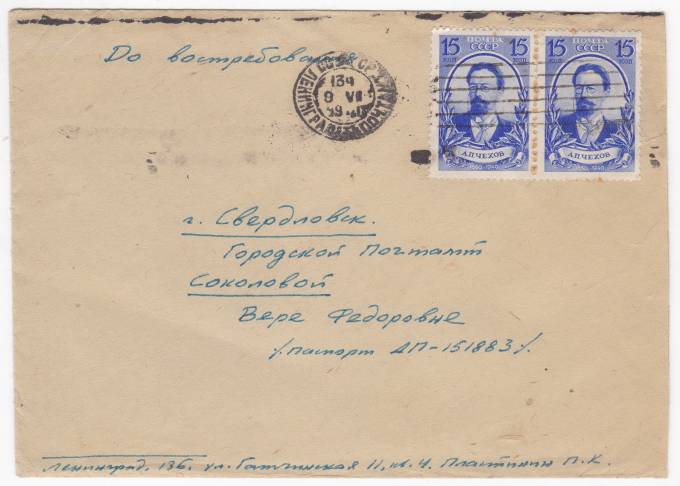 До востребования
ЛЕНИНГРАД ПОЧТАМТ
СССР
13ч
9 VII
15 ПОЧТА 15
КОП СССР КОП
А.П.ЧЕХОВ
1860-1940
15 ПОЧТА 15
КОП СССР КОП
А.П.ЧЕХОВ
1860-1940
г. Свердловск.
Городской Почтамт
Соколовой
Вере Федоровне
/. паспорт ДП-151883 /.
Ленинград, 136. ул. Гатчинская 11, кв. 4. Пластинин П. К.